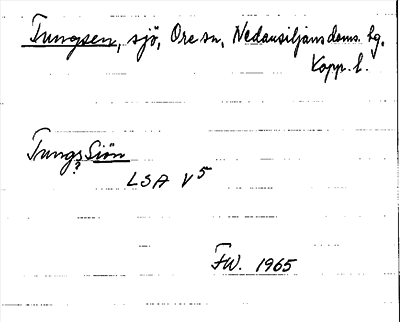 Tungsen, sjö, Ore sn, Nedansiljans doms. hg.
Kopp. l.
Tungs Siön
?
LSA V5
FW. 1965